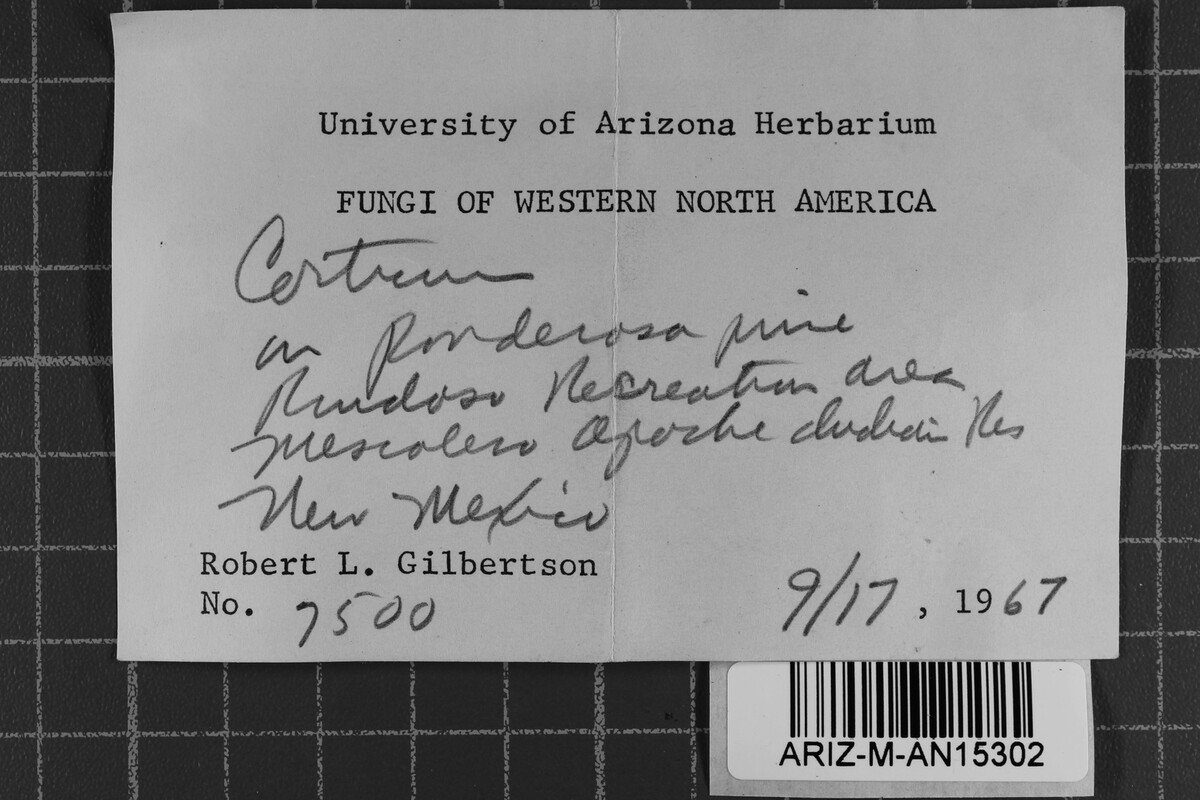 University of Arizona Herbarium
FUNGI OF WESTERN NORTH AMERICA
on Ponderosa pine
Ruidoso Recreation area
Mescalero Apache Indian Res
New Mexico
Robert L. Gilbertson
No. 7500
9/17, 1967
ARIZ-M-AN15302